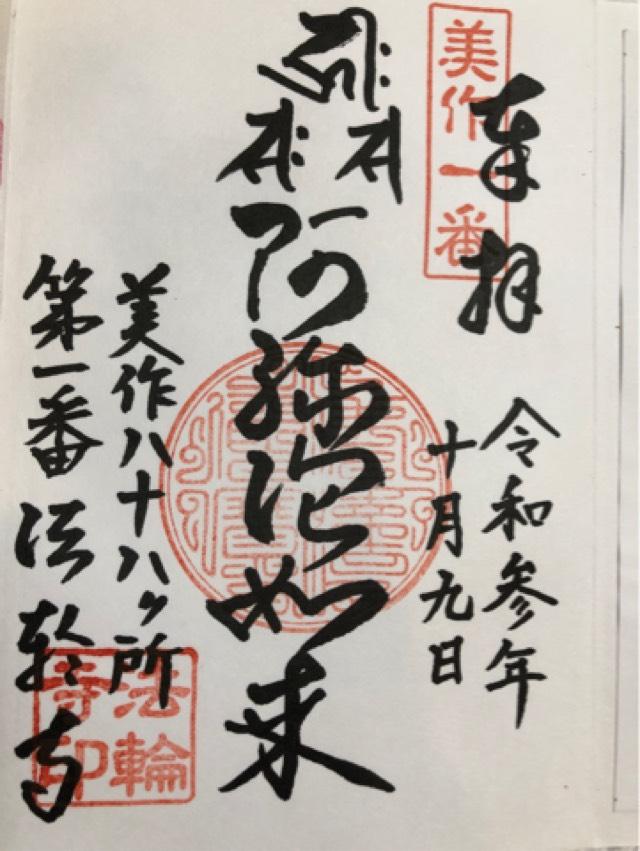 美作一番
奉拝
令和参年
十月九日
阿弥陀如来
美作八十八ヶ所
第一番 法輪寺
法輪
寺印